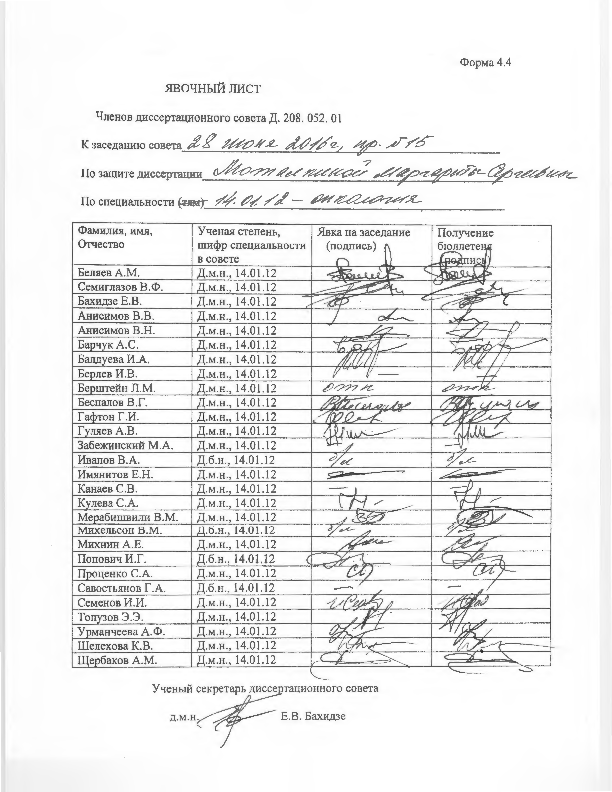 Форма 4.4
ЯВОЧНЫЙ ЛИСТ
Членов диссертационного совета Д. 208. 052. 01
К заседанию совета 28 июня 2016г, пр. №15
По защите диссертации Моталкиной Маргариты Сергеевны
По специальности (там) 14.01.12 – онкология
Фамилия, имя, Отчество Ученая степень, шифр специальности в совете Явка на заседание (подпись) Получение бюллетеня (подпись)
Беляев А.М. Д.м.н., 14.01.12
Семиглазов В.Ф. Д.м.н., 14.01.12
Бахидзе Е.В. Д.м.н., 14.01.12
Анисимов В.В. Д.м.н., 14.01.12
Анисимов В.Н. Д.м.н., 14.01.12
Барчук А.С. Д.м.н., 14.01.12
Балдуева И.А. Д.м.н., 14.01.12
Берлев И.В. Д.м.н., 14.01.12
Берштейн Л.М. Д.м.н., 14.01.12 отп отп
Беспалов В.Г. Д.м.н., 14.01.12
Гафтон Г.И. Д.м.н., 14.01.12
Гуляев А.В. Д.м.н., 14.01.12
Забежинский М.А. Д.м.н., 14.01.12 – –
Иванов В.А. Д.б.н., 14.01.12 б/л б/л
Имянитов Е.Н. Д.м.н., 14.01.12
Канаев С.В. Д.м.н., 14.01.12 – –
Кулева С.А. Д.м.н., 14.01.12
Мерабишвили В.М. Д.м.н., 14.01.12
Михельсон В.М. Д.б.н., 14.01.12 б/л
Михнин А.Е. Д.м.н., 14.01.12
Попович И.Г. Д.б.н., 14.01.12
Проценко С.А. Д.м.н., 14.01.12
Савостьянов Г.А. Д.б.н., 14.01.12 – –
Семенов И.И. Д.м.н., 14.01.12
Топузов Э.Э. Д.м.н., 14.01.12
Урманчеева А.Ф. Д.м.н., 14.01.12
Шелехова К.В. Д.м.н., 14.01.12
Щербаков А.М. Д.м.н., 14.01.12
Ученый секретарь диссертационного совета
д.м.н. Е.В. Бахидзе